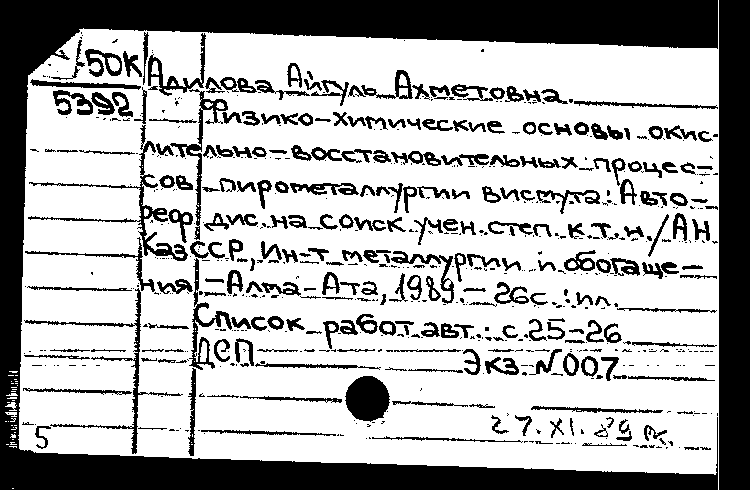 50К Адилова, Айгуль Ахметовна.
5392 Физико-химические основы окис-
лительно-восстановительных процес-
сов пирометаллургии висмута: Авто-
реф. дис. на соиск. учен. степ. к.т.н. / АН
КазССР, Ин-т металлургии и обогаще-
ния. - Алма-Ата, 1989. - 26с.: ил.
Список работ авт.: с. 25-26
ДСП Экз. N 007
27.XI.89
5